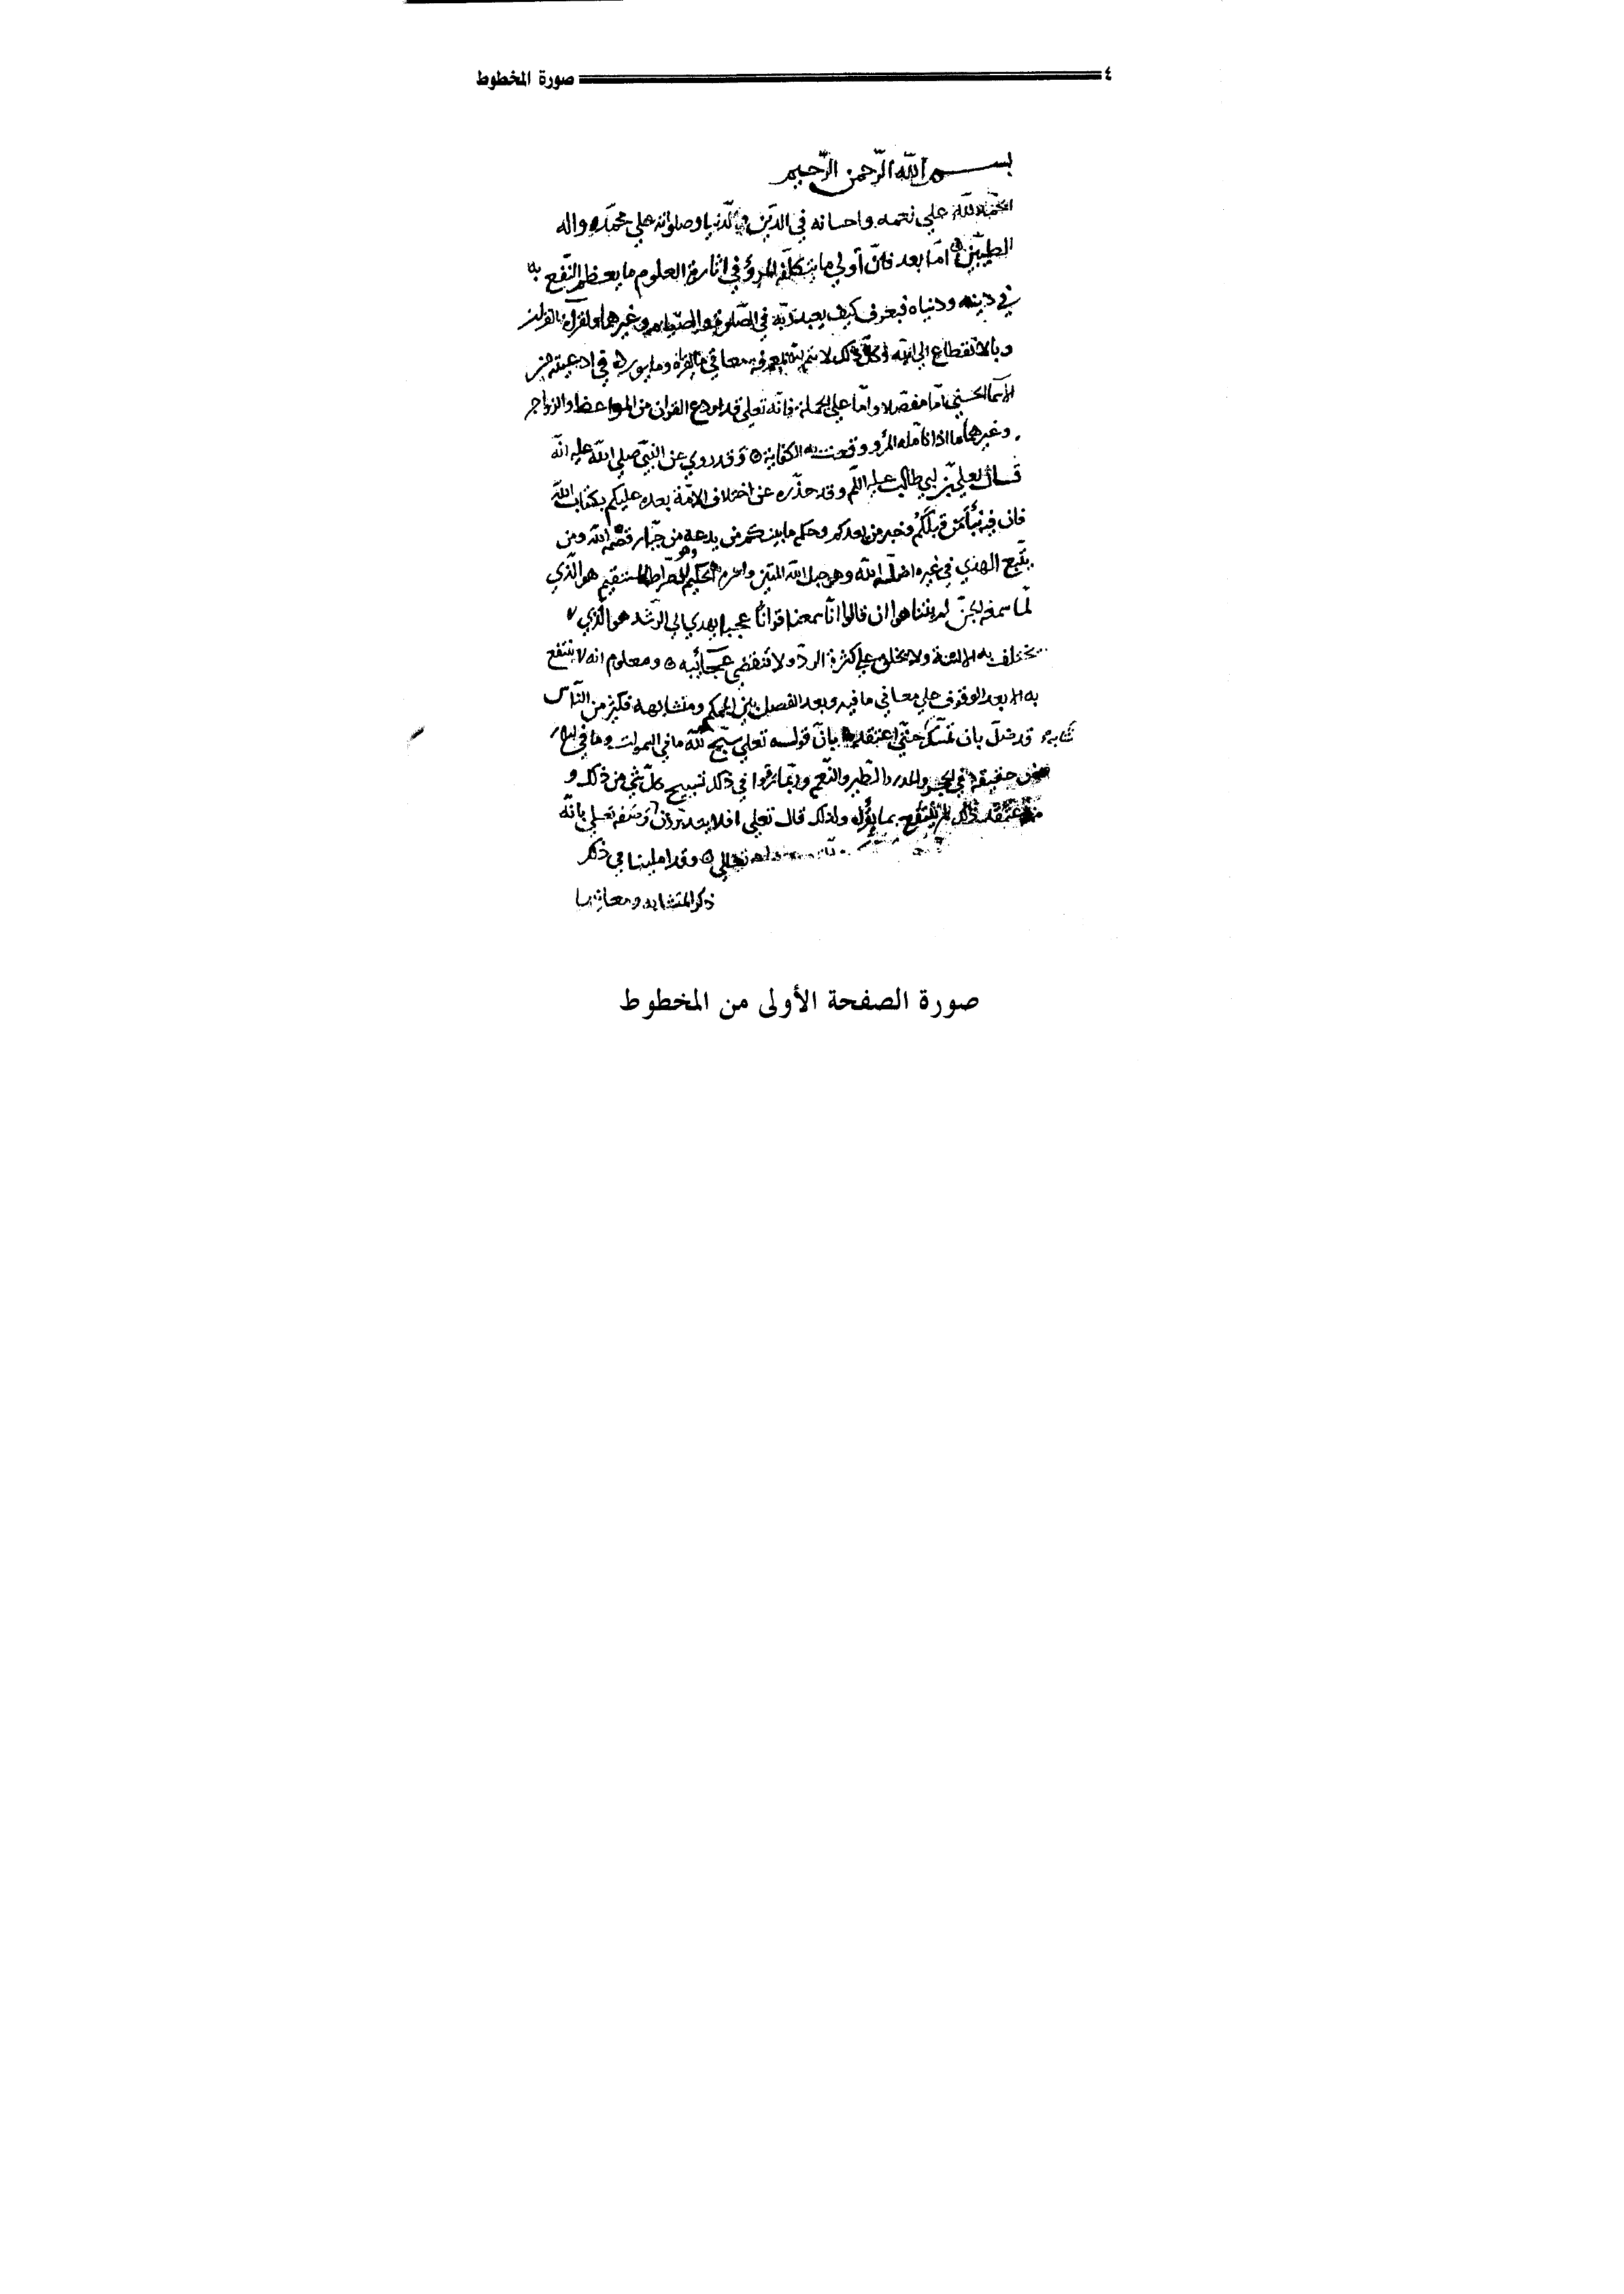 ٤ صورة المخطوط
بسم الله الرّحمن الرّحيم
الحمد لله علي نعمه واحسانه في الدّين والدّنيا وصلواته علي محمّد واله
الطيّبين امّا بعد فانّ أولي ما يتكلّفه المرؤ في اثارة العلوم ما يعظم النّفع به
في دينه ودنياه فيعرف كيف يعبد ربّه في الصّلوة والصّيام وغيرهما
وبالانقطاع الي الله وكلّ ذلك لا يتم الا بمعرفة معاني ما يقرأه وما يورده في ادعيته من
الاسما الحسني امّا مفصّلا وامّا علي الجملة فانّه تعلي قد اودع القران من المواعظ والزواجر
وغيرهما ما اذا تامله المرؤ وقعت به الكفاية ٥ وقد روي عن النبيّ صلي الله عليه انّه
قال لعلي بن ابي طالب عليه السّلم وقد حذّره عن اختلاف الامّة بعده عليكم بكتاب الله
فان فيه نبأ من قبلكم وخبر من بعدكم وحكم ما بينكم من يدعه من جبّار قصمه الله ومن
يتّبع الهدي في غيره اضلّه الله وهو حبل الله المتين الحكيم وهو الصّراط المستقيم هو الّذي
لمّا سمعه الجنّ لم يتناهوا ان قالوا انّا سمعنا قرانًا عجبا يهدي الي الرّشد هو الّذي لا
تختلف به الالسنة ولا يخلق علي كثرة الردّ ولا تنقضي عجائبه ٥ ومعلوم انه لا ينتفع
به الا بعد الوقوف علي معاني ما فيه وبعد الفصل بين المحكم ومتشابهه فكثير من النّاس
قد ضلّ بان تمسّك حتّي اعتقد بانّ قوله تعلي سبّح لله ما في السموات وما في الارض
حقيقة في الحجر والمدر والطّير والنّعم وربّما في ذلك تسبيح كلّ شي من ذلك و
من اعتقد ذلك لم ينتفع بما يقرأه ولذلك قال تعلي افلا يتدبّرون القران وصفه تعلي بانّه
تعالي ٥ وقد املينا في ذكر
ذكر المتشابه ومعانيها
صورة الصفحة الأولى من المخطوط